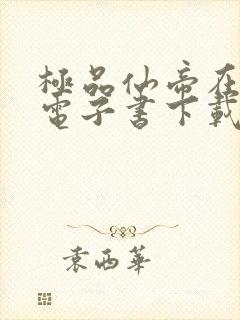 極品仙帝在
電子書下載
袁西華